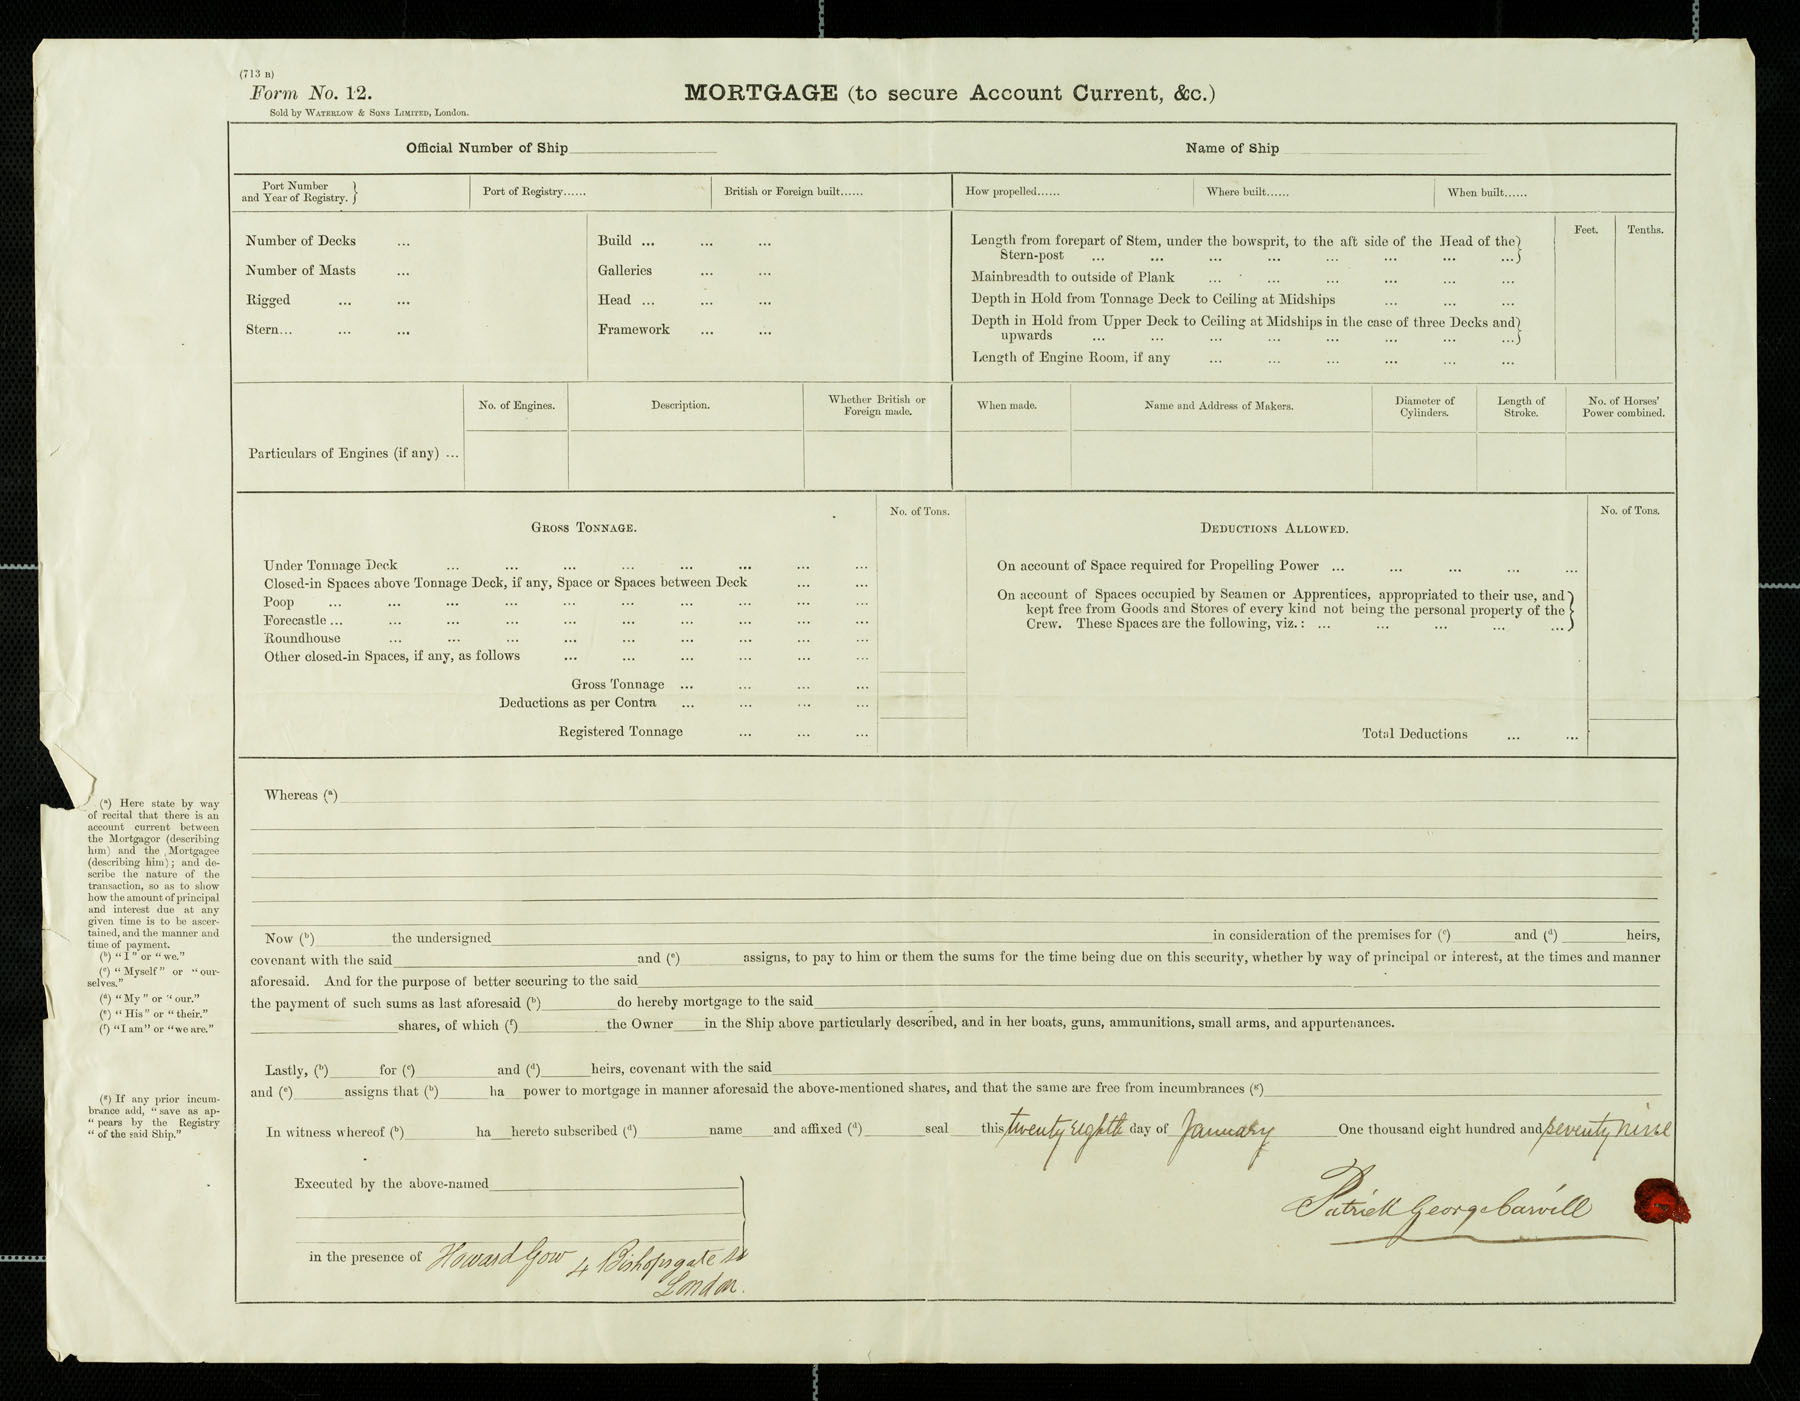 (713 B)
Form No. 12.
Sold by WATERLOW & SONS LIMITED, London.
MORTGAGE (to secure Account Current, &c.)
Official Number of Ship
Name of Ship
Port Number
and Year of Registry. }
Port of Registry......
British or Foreign built......
How propelled......
Where built......
When built......
Number of Decks ...
Number of Masts ...
Rigged ... ...
Stern... ... ...
Build ... ... ...
Galleries ... ...
Head ... ... ...
Framework ... ...
Feet. Tenths.
Length from forepart of Stem, under the bowsprit, to the aft side of the Head of the }
Stern-post ... ... ... ... ... ... ... ...
Mainbreadth to outside of Plank ... ... ... ... ... ...
Depth in Hold from Tonnage Deck to Ceiling at Midships ... ... ...
Depth in Hold from Upper Deck to Ceiling at Midships in the case of three Decks and }
upwards ... ... ... ... ... ... ... ...
Length of Engine Room, if any ... ... ... ... ... ...
No. of Engines.
Description.
Whether British or
Foreign made.
When made.
Name and Address of Makers.
Diameter of
Cylinders.
Length of
Stroke.
No. of Horses'
Power combined.
Particulars of Engines (if any) ...
GROSS TONNAGE.
No. of Tons.
Under Tonnage Deck ... ... ... ... ... ... ... ...
Closed-in Spaces above Tonnage Deck, if any, Space or Spaces between Deck ... ...
Poop ... ... ... ... ... ... ... ... ... ...
Forecastle ... ... ... ... ... ... ... ... ... ...
Roundhouse ... ... ... ... ... ... ... ... ...
Other closed-in Spaces, if any, as follows ... ... ... ... ... ...
Gross Tonnage ... ... ... ...
Deductions as per Contra ... ... ... ...
Registered Tonnage ... ... ...
DEDUCTIONS ALLOWED.
No. of Tons.
On account of Space required for Propelling Power ... ... ... ... ...
On account of Spaces occupied by Seamen or Apprentices, appropriated to their use, and }
kept free from Goods and Stores of every kind not being the personal property of the
Crew. These Spaces are the following, viz. : ... ... ... ... ...
Total Deductions ... ...
Whereas (a)
Now (b) the undersigned in consideration of the premises for (c) and (d) heirs,
covenant with the said and (e) assigns, to pay to him or them the sums for the time being due on this security, whether by way of principal or interest, at the times and manner
aforesaid. And for the purpose of better securing to the said
the payment of such sums as last aforesaid (b) do hereby mortgage to the said
shares, of which (f) the Owner in the Ship above particularly described, and in her boats, guns, ammunitions, small arms, and appurtenances.
Lastly, (b) for (c) and (d) heirs, covenant with the said
and (e) assigns that (b) ha power to mortgage in manner aforesaid the above-mentioned shares, and that the same are free from incumbrances (g)
In witness whereof (b) ha hereto subscribed (d) name and affixed (d) seal this twenty eighth day of January One thousand eight hundred and seventy nine
Executed by the above-named
Patrick George Carvill
in the presence of Howard Gow 4 Bishopsgate St
London.
(a) Here state by way
of recital that there is an
account current between
the Mortgagor (describing
him) and the Mortgagee
(describing him); and de-
scribe the nature of the
transaction, so as to show
how the amount of principal
and interest due at any
given time is to be ascer-
tained, and the manner and
time of payment.
(b) "I" or "we."
(c) "Myself" or "our-
selves."
(d) "My" or "our."
(e) "His" or "their."
(f) "I am" or "we are."
(g) If any prior incum-
brance add, "save as ap-
"pears by the Registry
"of the said Ship."